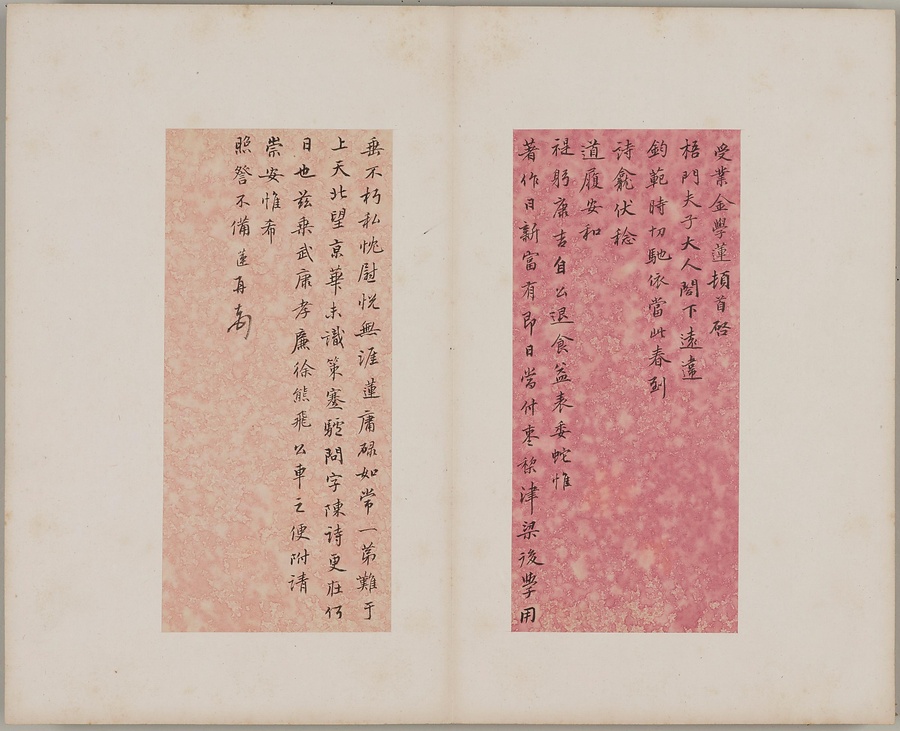 受業金學蓮頓首啓
梧門夫子大人閣下遠違
鈞範時切馳依當此春到
詩龕伏稔
道履安和
禔躬康吉自公退食益表委蛇惟
著作日新富有即日當付枣棃津梁後學用
垂不朽私忱慰悦無涯蓮庸碌如常一第難于
上天北望京華未識策蹇驢問字陳詩更在何
日也兹乗武康孝廉徐熊飛公車之便附請
崇安惟希
照詧不備 蓮再